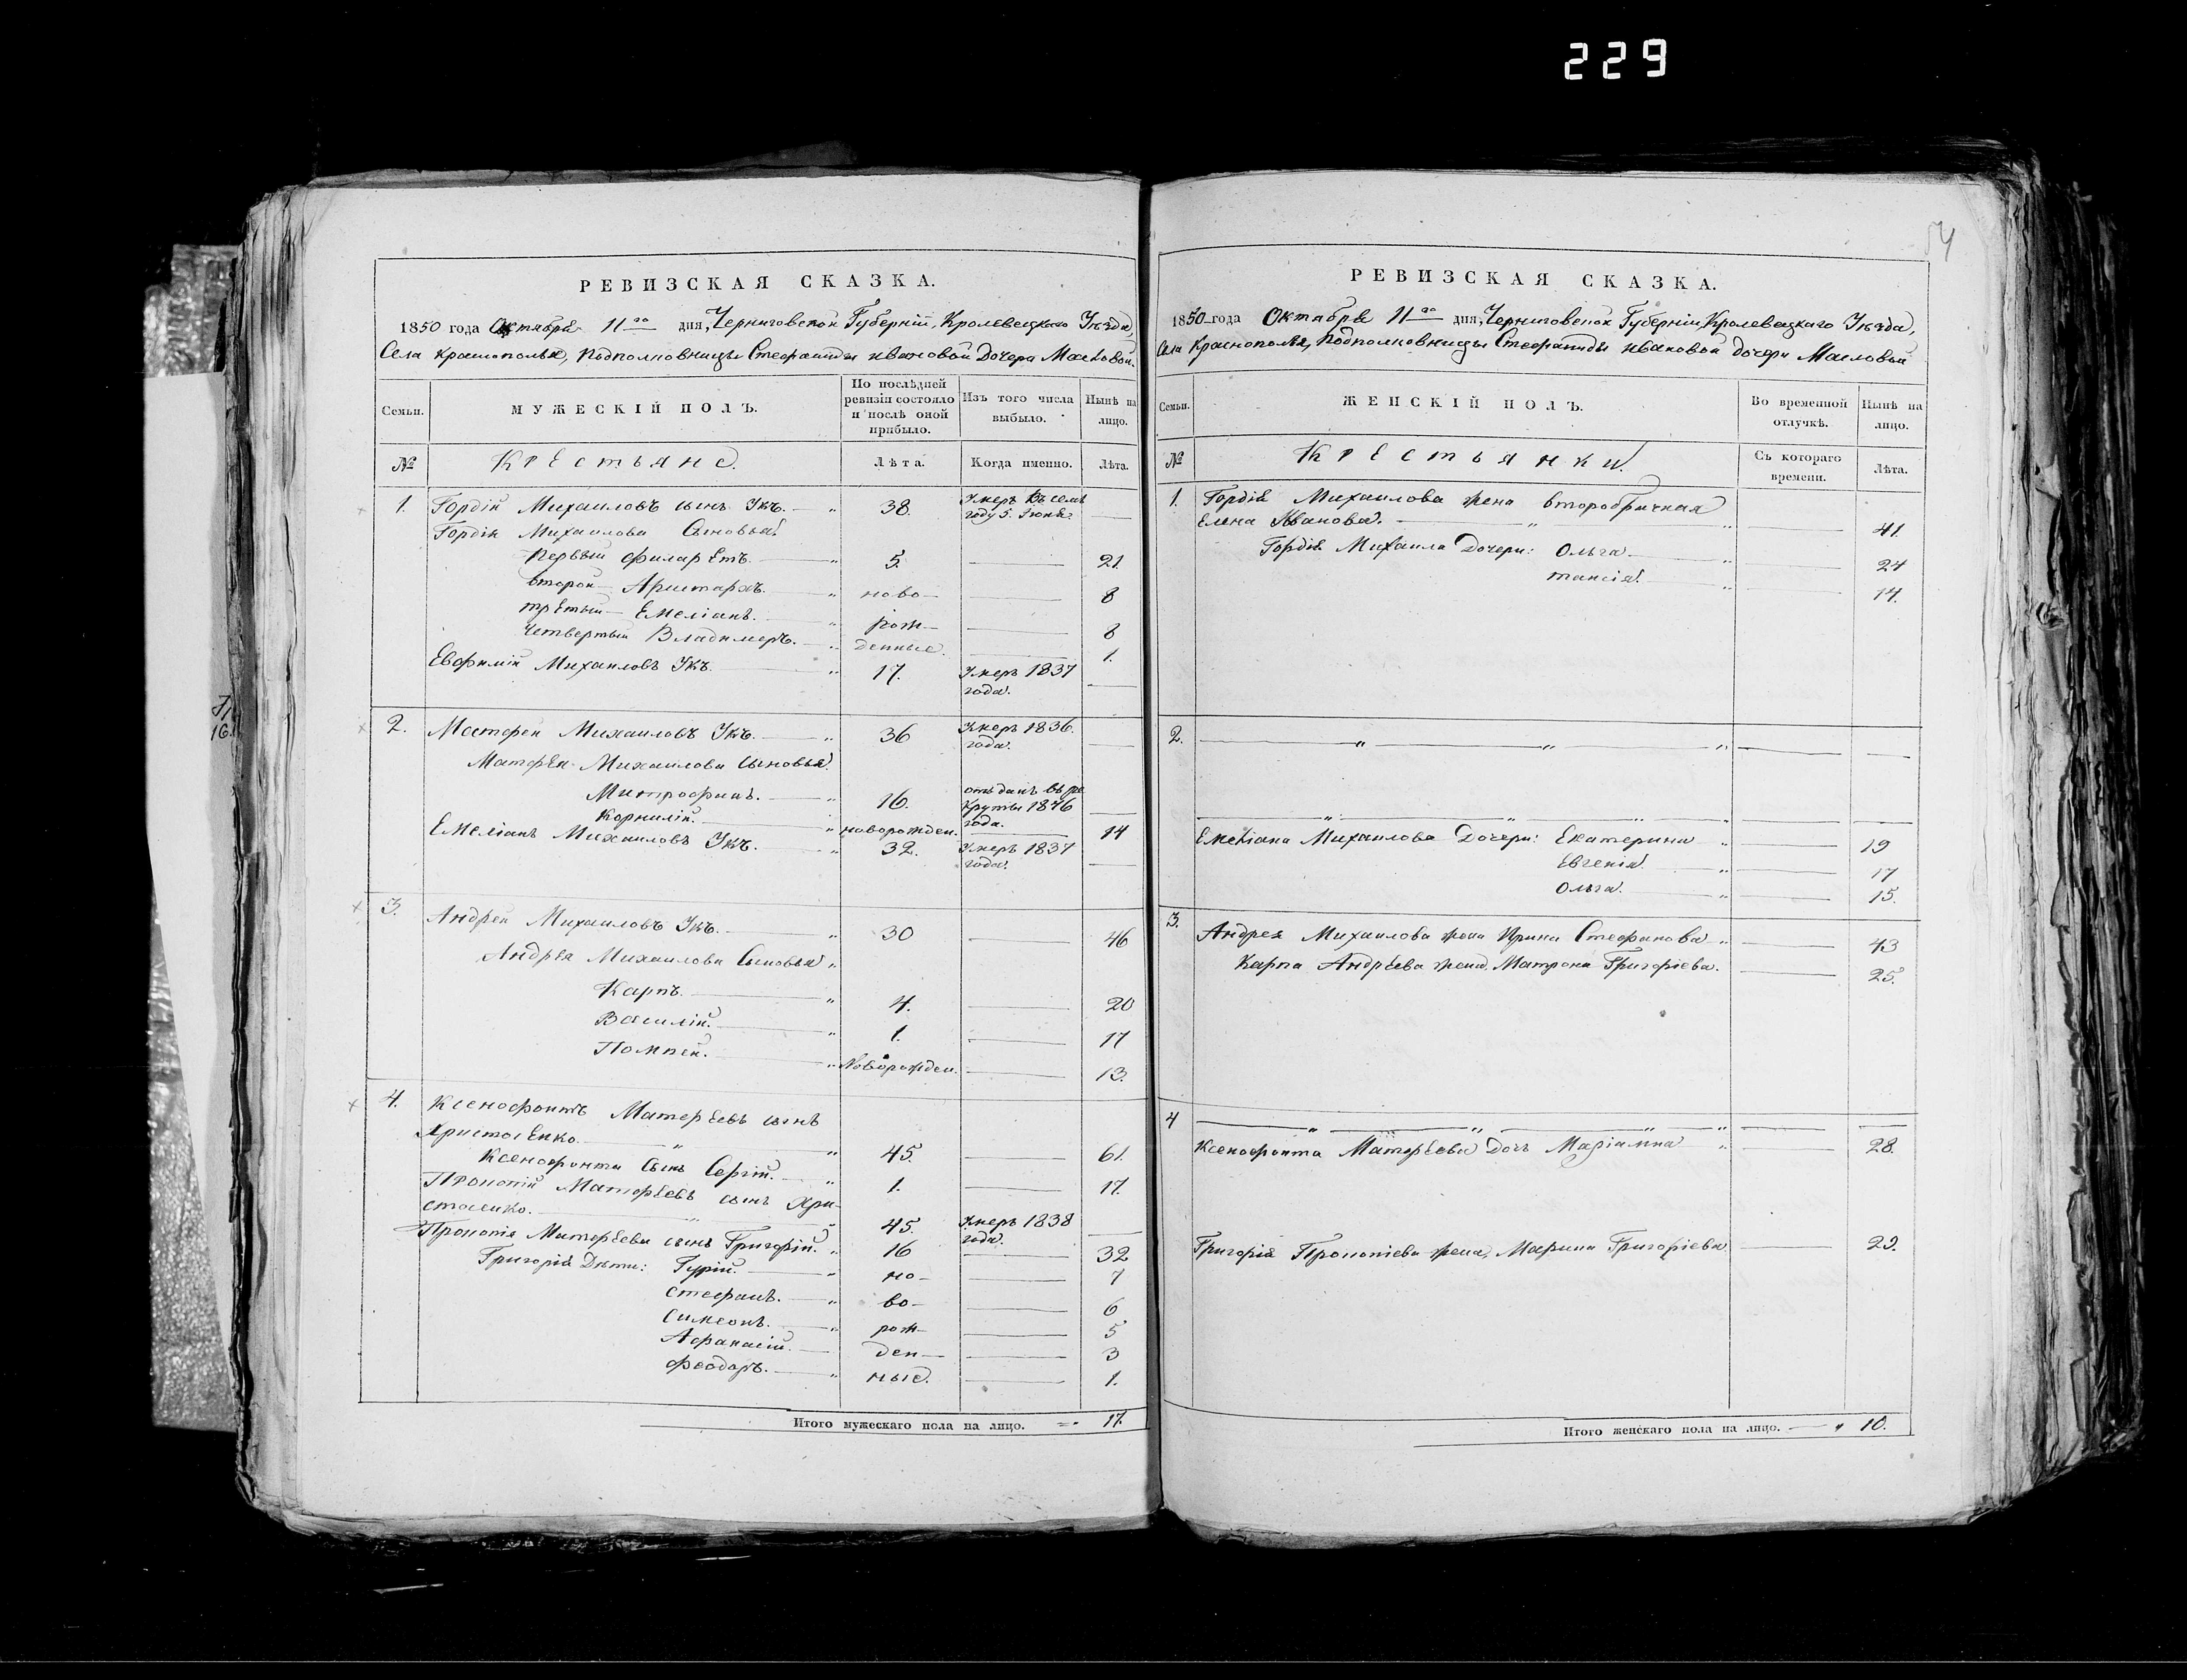 229
54
РЕВИЗСКАЯ СКАЗКА.
1850 года Октября 11го дня, Черниговской Губерніи, Кролевецкаго Уѣзда,
Села Краснополья, Подполковницы Стефаниды Ивановой Дочери Масловой.
Семьи.
МУЖЕСКІЙ ПОЛЪ.
По послѣдней
ревизіи состояло
и послѣ оной
прибыло.
Изъ того числа
выбыло.
Нынѣ на
лицо.
№
Крестьяне.
Лѣта.
Когда именно.
Лѣта.
1. Гордій Михаиловъ сынъ Укъ. — „ 38. Умеръ въ семъ
году 5. Іюня. —
Гордія Михаилова Сыновья:
Первый Филаретъ. — „ 5. — 21.
второй — Аристархъ. — „ ново- — 8
третый — Емеліанъ. — „ рож- — 8
Четвертый Владимеръ. — „ денные. — 1.
Евфимій Михаиловъ Укъ. — „ 17. Умеръ 1837
года. —
2. Матфей Михаиловъ Укъ. — „ 36 Умеръ 1836.
года. —
Матфея Михаилова Сыновья.
Митрофанъ. — „ 16. отданъ въ ре
круты 1846
года. —
Корнилій. — „ новорожден. — 14
Емеліанъ Михаиловъ Укъ. — „ 32. Умеръ 1837
года. —
3. Андрей Михаиловъ Укъ. — „ 30 — 46
Андрея Михаилова Сыновья „
Карпъ. — „ 4. — 20
Василій. — „ 1. — 17
Помпей. — „ Новорожден. — 13.
4. Ксенофонтъ Матфеевъ сынъ
Христосенко. — „ — „ 45. — 61.
Ксенофонта Сынъ Сергій. — „ 1. — 17.
Прокопій Матфеевъ сынъ Хри-
стосенко. — „ — „ 45. Умеръ 1838
года. —
Прокопія Матфеева сынъ Григорій. „ 16 — 32
Григорія Дѣти: Гурій. — „ но- — 7
Стефанъ. — „ во- — 6
Симеонъ. — „ рож- — 5
Афанасій. — ден- — 3
Феодоръ. — „ ные. — 1.
Итого мужескаго пола на лицо. 17.
РЕВИЗСКАЯ СКАЗКА.
1850 года Октября 11го дня, Черниговской Губерніи, Кролевецкаго Уѣзда,
Села Краснополья, Подполковницы Стефаниды Ивановой дочери Масловой
Семьи.
ЖЕНСКІЙ ПОЛЪ.
Во временной
отлучкѣ.
Нынѣ на
лицо.
№
Крестьянки.
Съ котораго
времени.
Лѣта.
1. Гордія Михаилова жена второбрачная
Елена Иванова. — „ — „ — 41.
Гордія Михаила Дочери: Ольга. — „ — 24
таисія. — „ — 14.
2. — „ — „ — „ — —
— „ — „ — „ — „ — —
Емеліана Михаилова Дочери: Екатерина „ — 19
Евгенія. — „ — 17
Ольга. — „ — 15.
3. Андрея Михаилова жена Ирина Стефанова „ — 43
Карпа Андреева жена. Матрона Григоріева. — 25.
4 — „ — „ — „ — „ — —
Ксенофонта Матфеева Дочь Маріамна „ — 28.
Григорія Прокопіева жена, Марина Григоріева. — 29.
Итого женскаго пола на лицо. — „ 10.